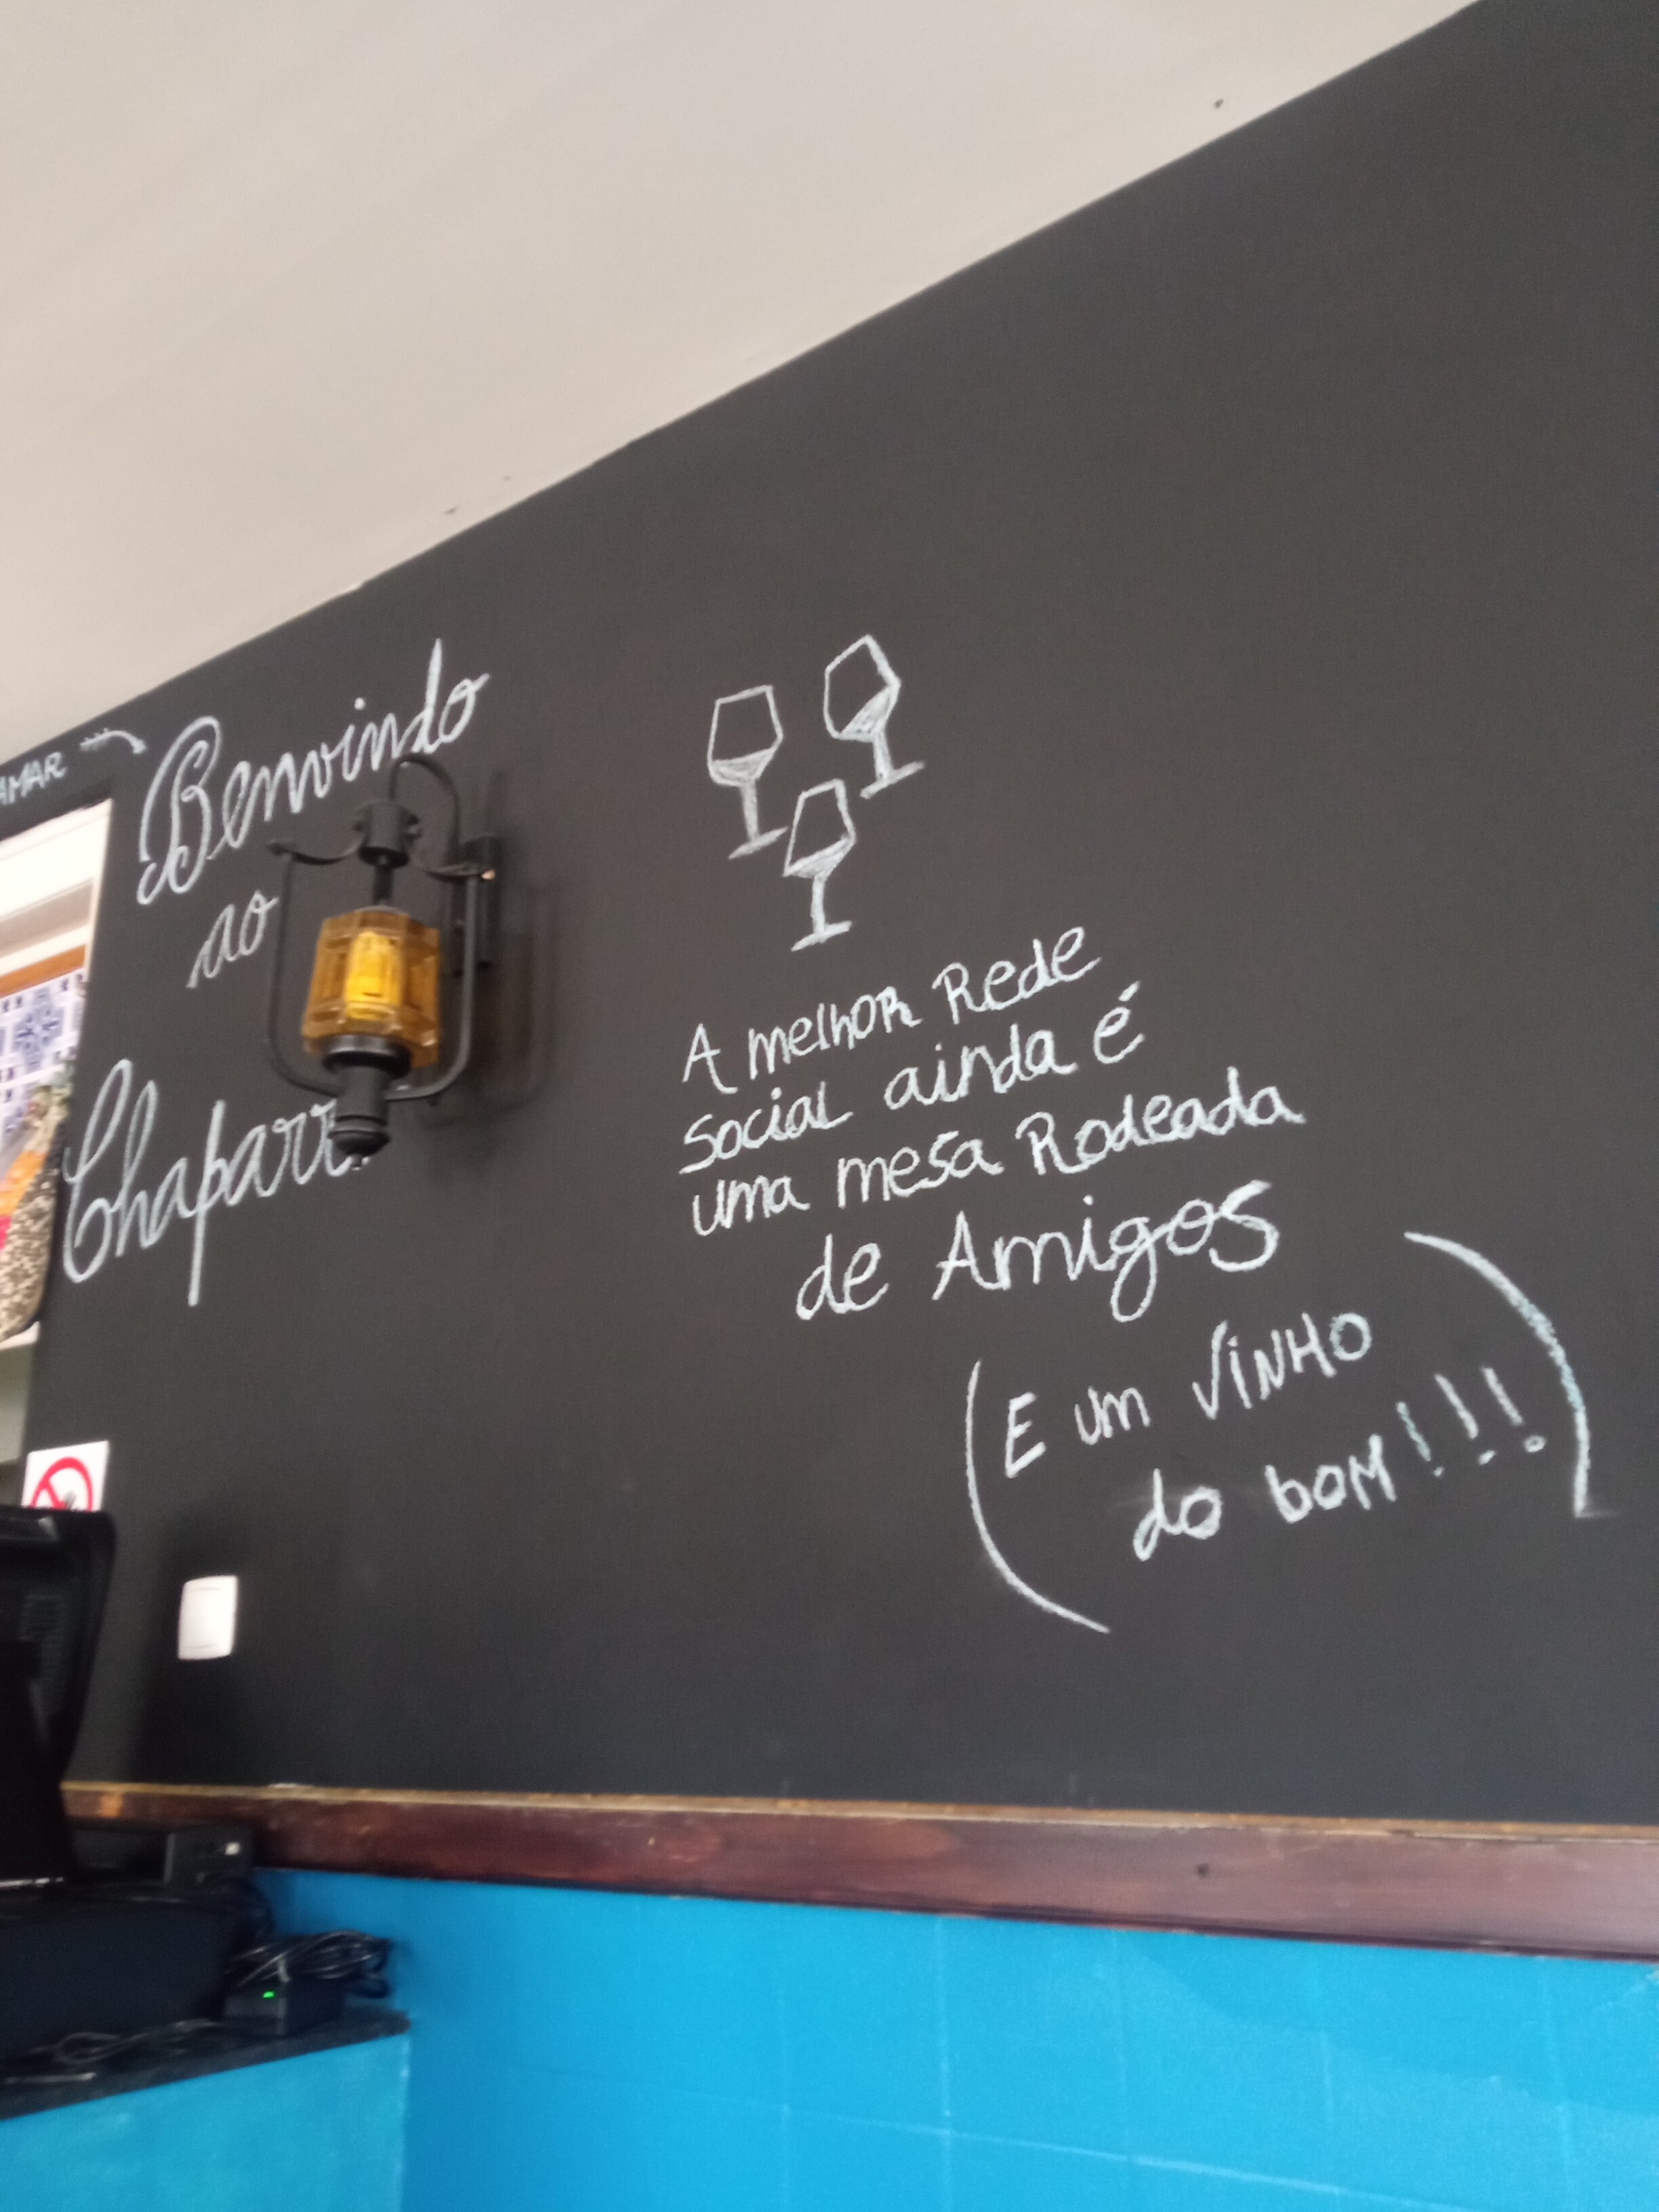 Benvindo
ao
A melhor Rede
social ainda é
uma mesa Rodeada
de Amigos
(E um VINHO
do bom!!!)